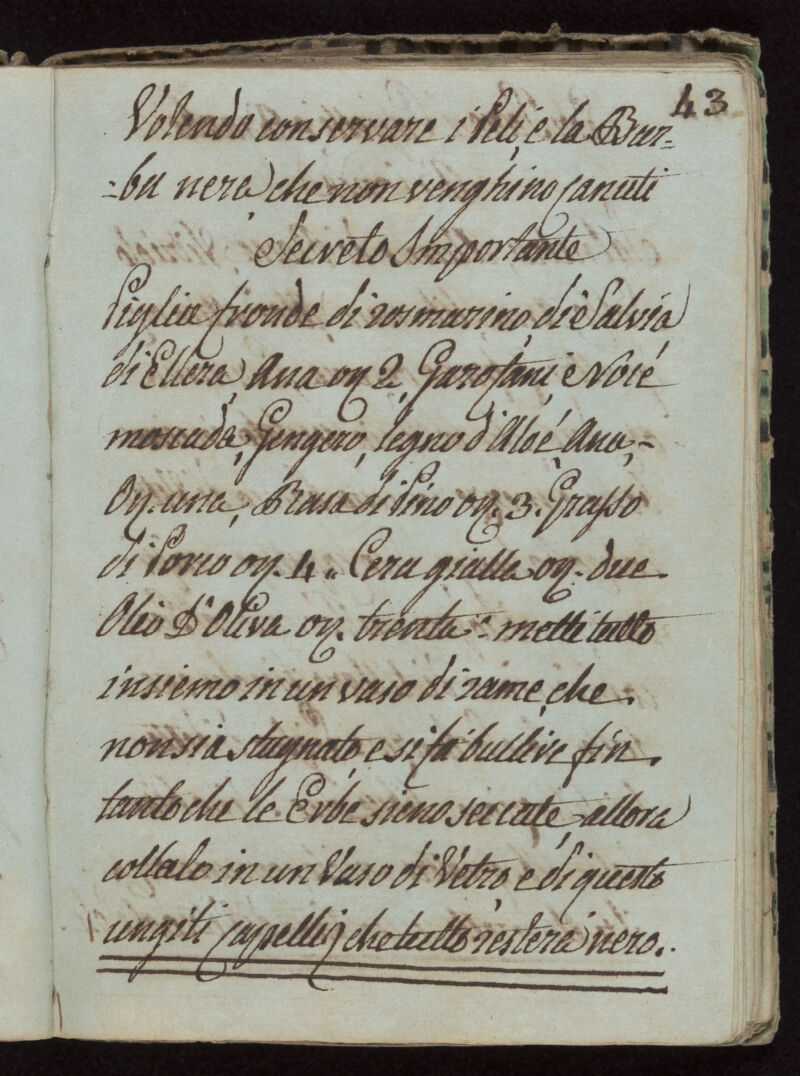 43
Volendo conservare i Peli, e la Bar=
=ba nera, che non venghino canuti
Secreto Importante
Piglia fronde di rosmarino, di Salvia
di Ellera, Ana on 2, Garofani, e Nocé
moscada, Gengero, legno d'Aloé, Ana,-
On. una, Rasa di Pino on. 3. Grasso
di Porco on. 4 " Cera gialla on. due.
Olio D'Oliva on. trenta " metti tutto
insiemo in un vaso di rame, che.
non sia stagnato, e si fá bullire fin.
tanto che le Erbe sieno seccate, allora
collalo in un Vaso di Vetro, e di questo
ungiti capelli, che tutto resterà nero..